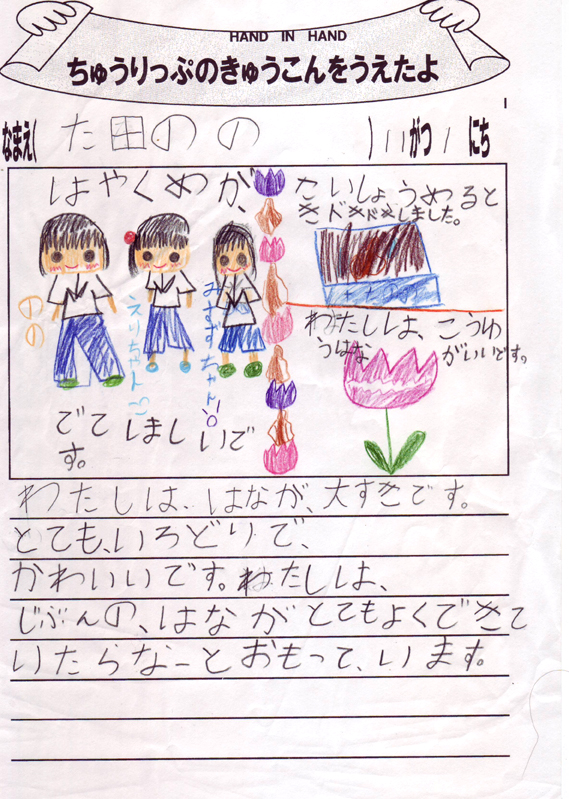 HAND IN HAND
ちゅうりっぷのきゅうこんをうえたよ
なまえ( た田のの ) 11がつ1にち
はやくめが、
のの
えりちゃん
みすずちゃん
でてほしいで
す。
さいしょうめると
きドキドキしました。
わたしは、こうゆ
うはながいいです。
わたしは、はなが、大すきです。
とても、いろどりで、
かわいいです。わたしは、
じぶんの、はながとてもよくできて
いたらなーとおもって、います。